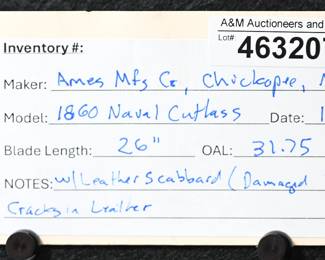 A&M Auctioneers and
Lot# 463207
Inventory #:
Maker: Ames Mfg Co, Chickopee,
Model: 1860 Naval Cutlass Date: 1
Blade Length: 26" OAL: 31.75
NOTES: w/Leather Scabbard (Damaged
Cracks in Leather